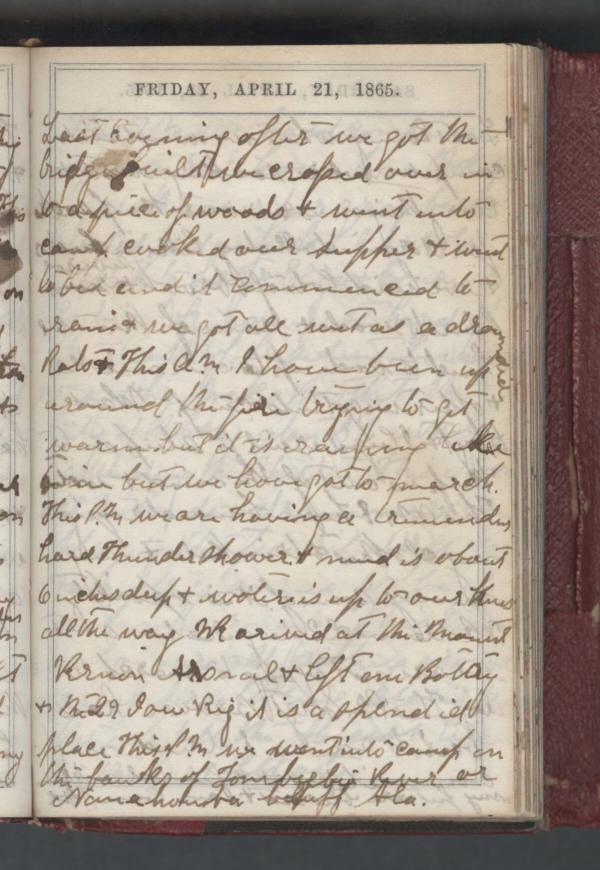 FRIDAY, APRIL 21, 1865.
Last Evening after we got the
bridge built we crossed over in
to a piece of woods & went into
camp cooked our supper & went
to bed and it commenced to
rain & we got all wet as a drownded
Rats & This A.M I have been up
around the fire trying to get
warm but it is raining like
but we have got to march.
This P.M we are having a tremendus
hard Thunder shower & mud is about
6 inches deep & water is up to our knes
all the way We arived at the Mount
Vernon Arsnal & left our Battry
& the 29 Iow Reg it is a splendid
place This P.M we went into camp on
the banks of Tombegbie River or
Nanahouba bluff Ala.